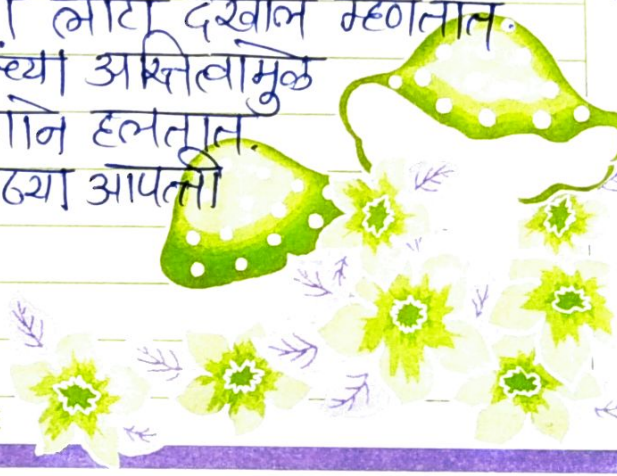 लाटा देखील म्हणतात
च्या अस्तित्वामुळे
गाने हलतात.
ठ्या आपत्ती